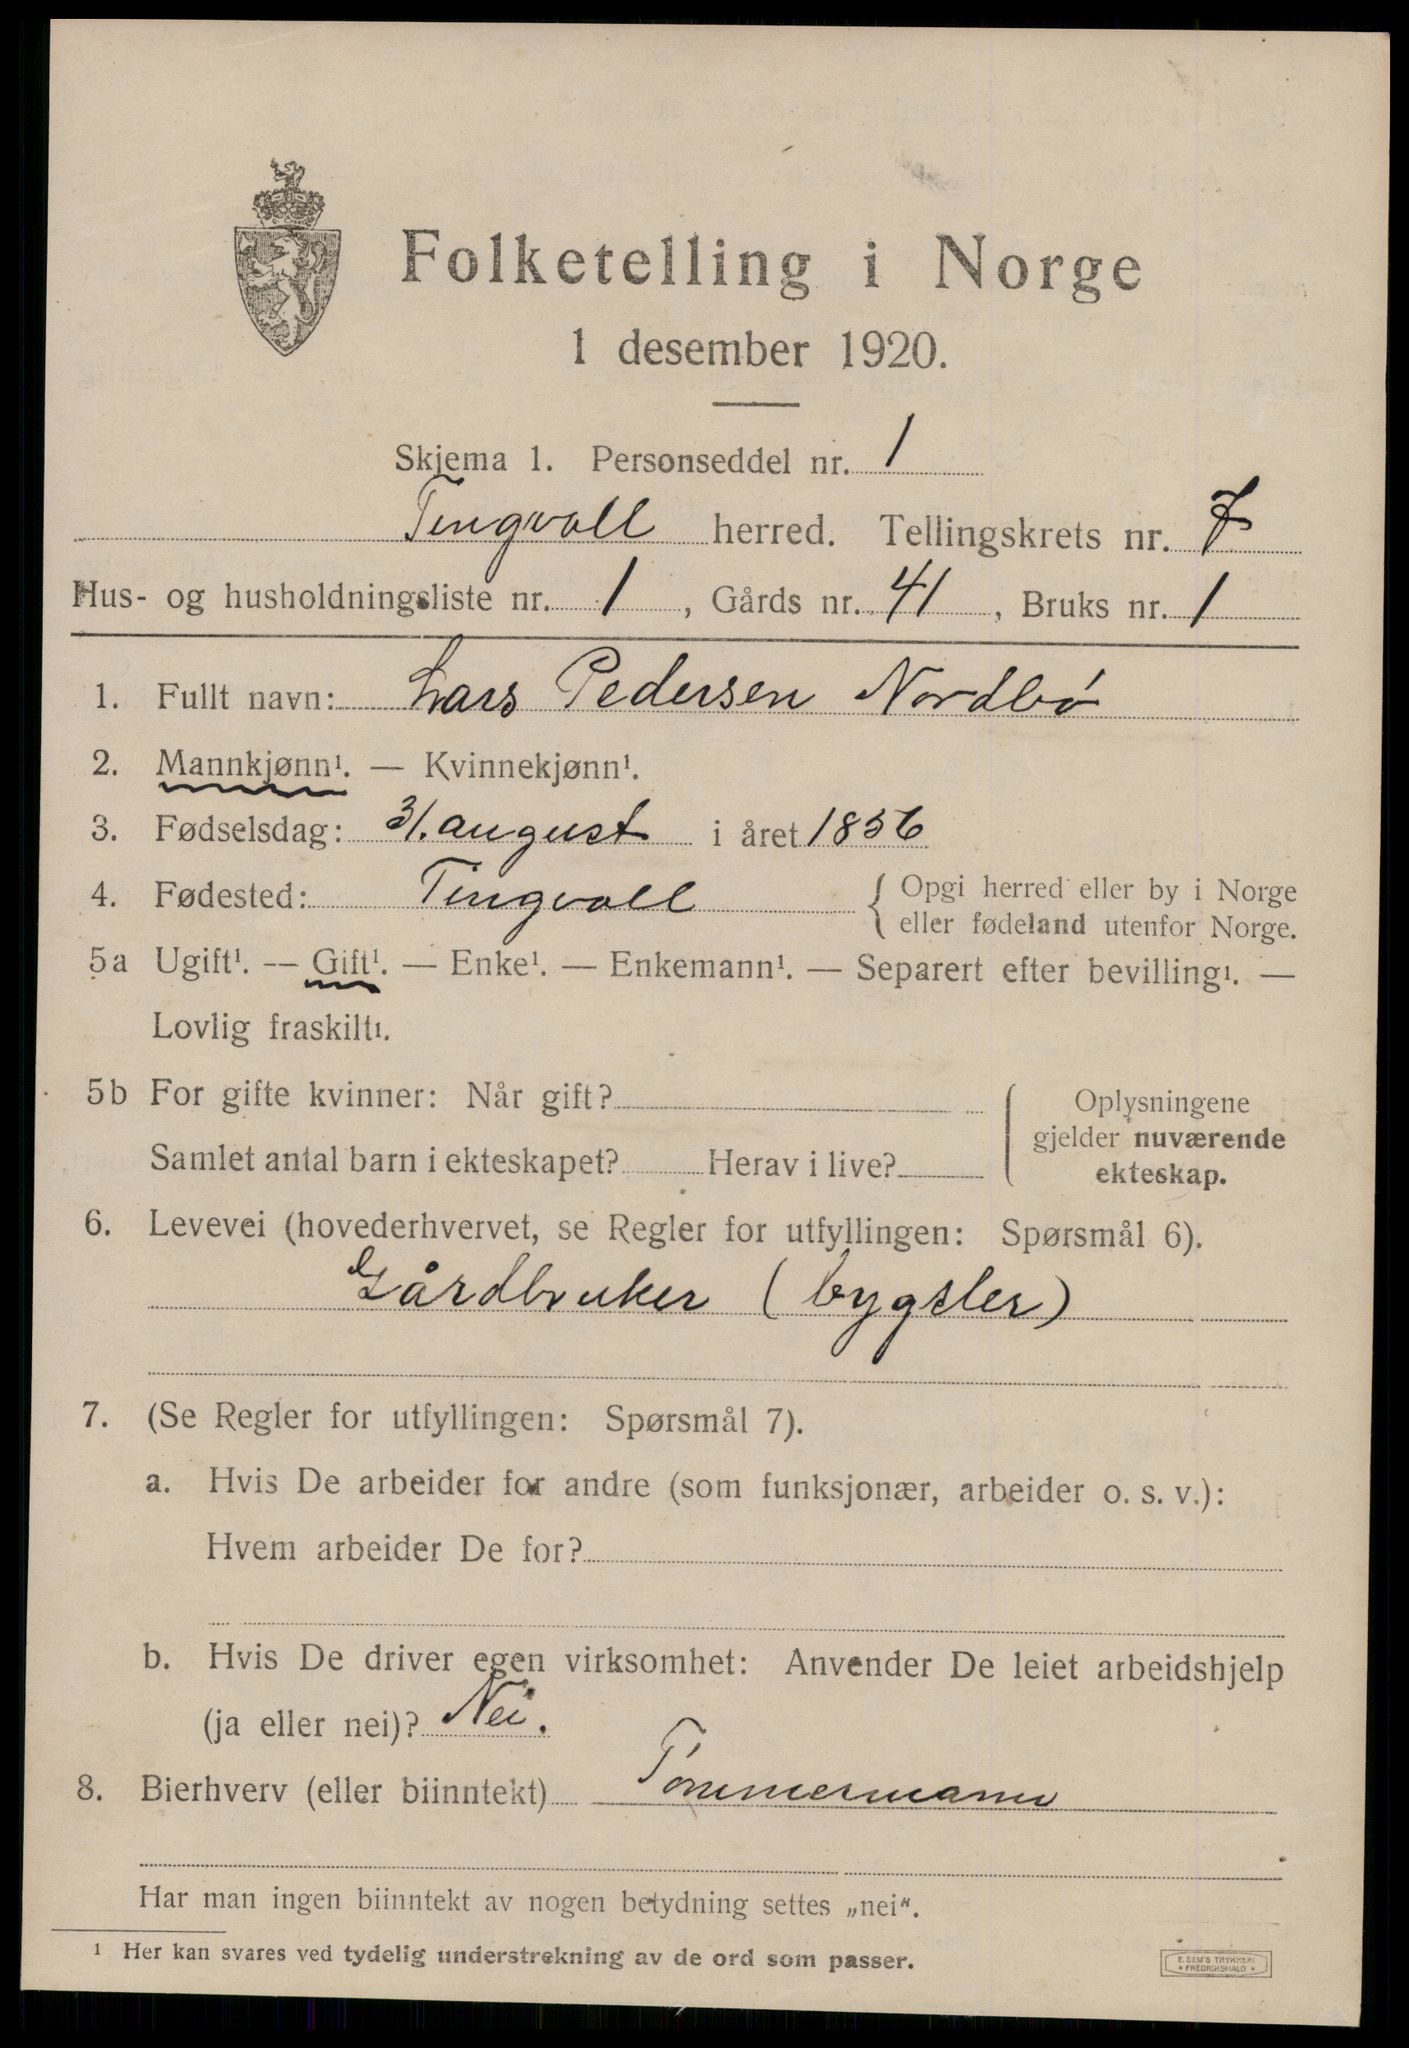 Folketelling i Norge
1 desember 1920.
Skjema 1. Personseddel nr. 1
Tingvoll herred. Tellingskrets nr. 7
Hus- og husholdningsliste nr. 1, Gårds nr. 41, Bruks nr. 1
1. Fullt navn: Lars Pedersen Nordbø
2. Mannkjønn¹. — Kvinnekjønn¹.
3. Fødselsdag: 31. august i året 1856
4. Fødested: Tingvoll { Opgi herred eller by i Norge
eller fødeland utenfor Norge.
5a Ugift¹. — Gift¹. — Enke¹. — Enkemann¹. — Separert efter bevilling¹. —
Lovlig fraskilt¹.
5b For gifte kvinner: Når gift?
Samlet antal barn i ekteskapet? Herav i live?
Oplysningene
gjelder nuværende
ekteskap.
6. Levevei (hovederhvervet, se Regler for utfyllingen: Spørsmål 6).
Gårdbruker (bygsler)
7. (Se Regler for utfyllingen: Spørsmål 7).
a. Hvis De arbeider for andre (som funksjonær, arbeider o. s. v.):
Hvem arbeider De for?
b. Hvis De driver egen virksomhet: Anvender De leiet arbeidshjelp
(ja eller nei)? Nei.
8. Bierhverv (eller biinntekt) Tömmermann
Har man ingen biinntekt av nogen betydning settes „nei“.
¹ Her kan svares ved tydelig understrekning av de ord som passer.
E. SEM'S TRYKKERI
* FREDRIKSHALD *